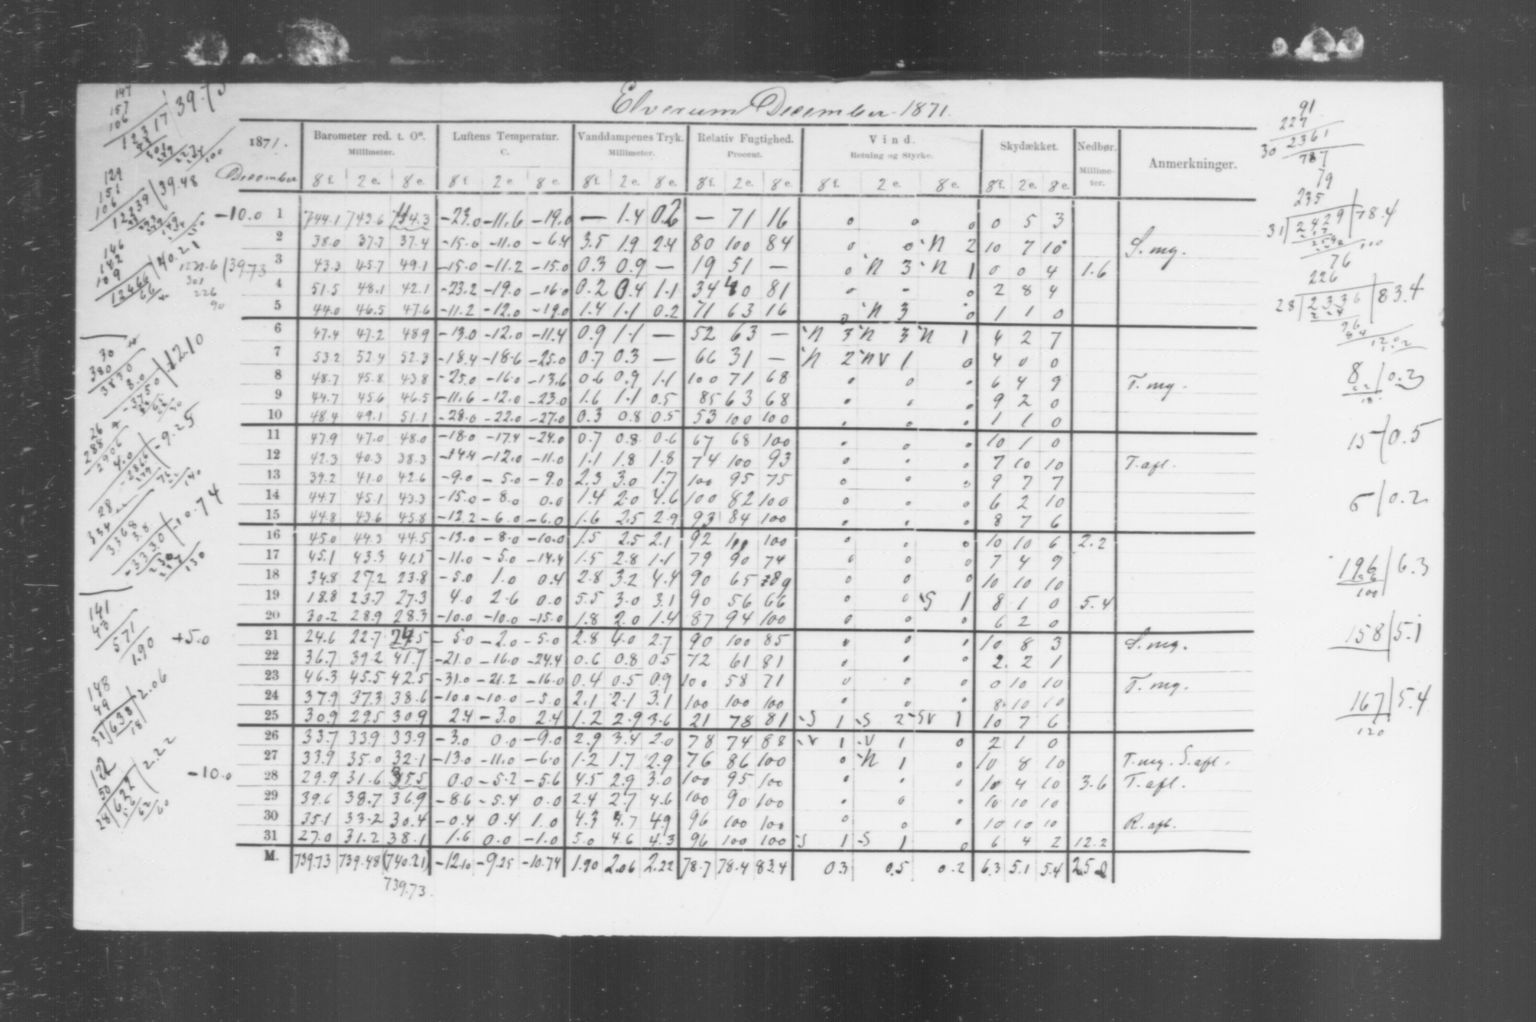 Elverum December 1871.
1871. Barometer red. t. 0°. Luftens Temperatur. Vanddampenes Tryk. Relativ Fugtighed. Vind. Skydækket. Nedbør. Anmerkninger.
Millimeter. C. Millimeter. Procent. Retning og Styrke. Millimeter.
December 8 f. 2 e. 8 e. 8 f. 2 e. 8 e. 8 f. 2 e. 8 e. 8 f. 2 e. 8 e. 8 f. 2 e. 8 e. 8 f. 2 e. 8 e.
-10.0 1 744.1 743.6 44.3 -23.0 -11.6 -19.0 — 1.4 0.2 — 71 16 0 0 0 0 5 3
2 38.0 37.7 37.4 -15.0 -11.0 -6.4 3.5 1.9 2.4 80 100 84 0 0 N 2 10 7 10 S. mg.
3 43.3 45.7 49.1 -15.0 -11.2 -15.0 0.3 0.9 — 19 51 — 0 N 3 N 1 0 0 4 1.6
4 51.5 48.1 42.1 -23.2 -19.0 -16.0 0.2 0.4 1.1 34 40 81 0 0 0 2 8 4
5 44.0 46.5 47.6 -11.2 -12.0 -19.0 1.4 1.1 0.2 71 63 16 0 N 3 0 1 1 0
6 47.4 47.2 48.9 -13.0 -12.0 -11.4 0.9 1.1 — 52 63 — N 3 N 3 N 1 4 2 7
7 53.2 52.4 52.3 -18.4 -18.6 -25.0 0.7 0.3 — 66 31 — N 2 NV 1 0 4 0 0
8 48.7 45.8 43.8 -25.0 -16.0 -13.6 0.6 0.9 1.1 100 71 68 0 0 0 6 4 9 T. mg.
9 44.7 45.6 46.5 -11.6 -12.0 -23.0 1.6 1.1 0.5 85 63 68 0 0 0 9 2 0
10 48.4 49.1 51.1 -28.0 -22.0 -27.0 0.3 0.8 0.5 53 100 100 0 0 0 1 1 0
11 47.9 47.0 48.0 -18.0 -17.4 -24.0 0.7 0.8 0.6 67 68 100 0 0 0 10 1 0
12 42.3 40.3 38.3 -14.4 -12.0 -11.0 1.1 1.8 1.8 74 100 93 0 0 0 7 10 10 T. afl.
13 39.2 41.0 42.6 -9.0 -5.0 -9.0 2.3 3.0 1.7 100 95 75 0 0 0 9 7 7
14 44.7 45.1 43.3 -15.0 -8.0 0.0 1.4 2.0 4.6 100 82 100 0 0 0 6 2 10
15 44.8 43.6 45.8 -12.2 -6.0 -6.0 1.6 2.5 2.9 93 84 100 0 0 0 8 7 6
16 45.0 44.3 44.5 -13.0 -8.0 -10.0 1.5 2.5 2.1 92 100 100 0 0 0 10 10 6 2.2
17 45.1 43.3 41.5 -11.0 -5.0 -14.4 1.5 2.8 1.1 79 90 74 0 0 0 7 4 9
18 34.8 27.2 23.8 -5.0 1.0 0.4 2.8 3.2 4.4 90 65 0 0 0 10 10 10
19 18.8 23.7 27.3 4.0 2.6 0.0 5.5 3.0 3.1 90 56 66 0 0 S 1 8 1 0 5.4
20 30.2 28.9 28.3 -10.0 -10.0 -15.0 1.8 2.0 1.4 87 94 100 0 0 0 6 2 0
+5.0 21 24.6 22.7 24.5 -5.0 -2.0 -5.0 2.8 4.0 2.7 90 100 85 0 0 0 10 8 3 S. mg.
22 36.7 39.2 41.7 -21.0 -16.0 -24.4 0.6 0.8 0.5 72 61 81 0 0 0 2 2 1
23 46.3 45.5 42.5 -31.0 -21.2 -16.0 0.4 0.5 0.9 100 58 71 0 0 0 0 10 10 T. mg.
24 37.9 37.3 38.6 -10.0 -10.0 -5.0 2.1 2.1 3.1 100 100 100 0 0 0 8 10 10
25 30.9 29.5 30.9 2.4 -3.0 2.4 1.2 2.9 3.6 21 78 81 S 1 S 2 SV 1 10 7 6
26 33.7 33.9 33.9 -3.0 0.0 -9.0 2.9 3.4 2.0 78 74 88 V 1 V 1 0 2 1 0
27 33.9 35.0 32.1 -13.0 -11.0 -6.0 1.2 1.7 2.9 76 86 100 0 N 1 0 10 8 10 T. mg. S. afl.
-10.0 28 29.9 31.6 35.5 0.0 -5.2 -5.6 4.5 2.9 3.0 100 95 100 0 0 0 10 4 10 3.6 T. afl.
29 39.6 38.7 36.9 -8.6 -5.4 0.0 2.4 2.7 4.6 100 90 100 0 0 0 10 10 10
30 35.1 33.2 30.4 -0.4 0.4 1.0 4.3 4.7 4.9 96 100 100 0 0 0 10 10 10 R. afl.
31 27.0 31.2 38.1 1.6 0.0 -1.0 5.0 4.6 4.3 96 100 100 S 1 S 1 0 6 4 2 12.2
M. 739.73 739.48 (740.21) -12.10 -9.25 -10.74 1.90 2.06 2.22 78.7 78.4 83.4 0.3 0.5 0.2 6.3 5.1 5.4 25.0
739.73.
147
157
106
12317 39.73
129
151
106
12339 39.48
146
142
109
12466 40.21
39.73
3830
12.10
-9.25
28
334
3368
-10.74
141
43
571
1.90
148
49
31 638 2.06
122
50
28 622 2.22
91
227
30 2361
787
79
235
31 2429 78.4
76
226
28 2336 83.4
8 0.2
15 0.5
6 0.2
196 6.3
100
158 5.1
167 5.4
120